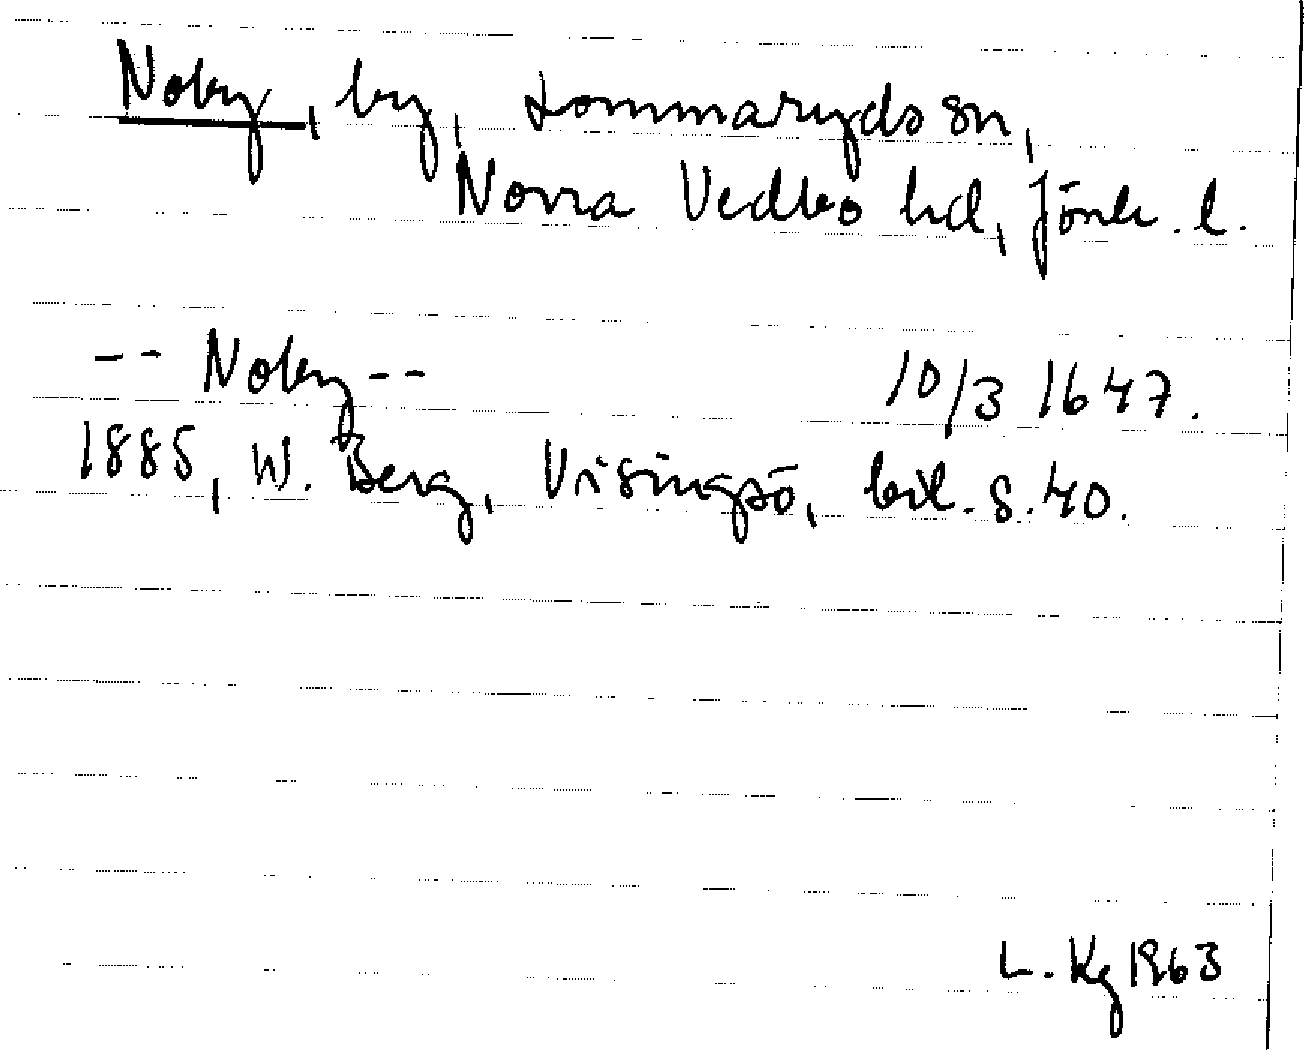 Noby, by, Lommaryds sn,
Norra Vedbo hd, Jönk. l.
-- Noby -- 10/3 1647.
1885, W. Berg, Visingsö, bil. s. 40.
L. Kg 1963